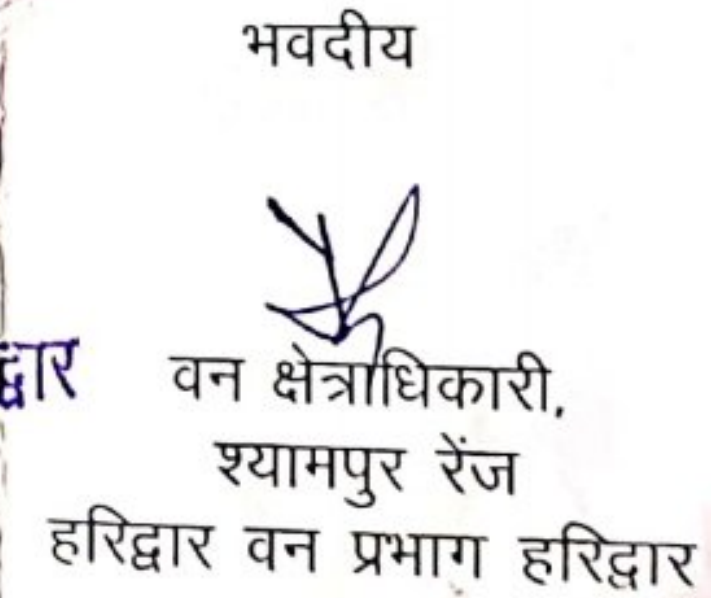 भवदीय
द्वार वन क्षेत्राधिकारी,
श्यामपुर रेंज
हरिद्वार वन प्रभाग हरिद्वार